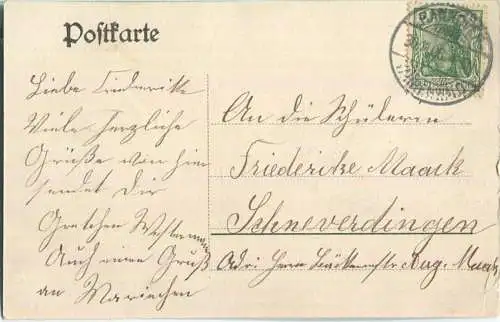 Postkarte
Liebe Friederike
Viele herzliche
Grüße von hier
sendet Dir
Gretchen
Auch einen Gruß
an Mariechen
An die Schülerin
Friederike Maack
Schneverdingen
Adr: Herrn Bäckermstr Aug. Maack